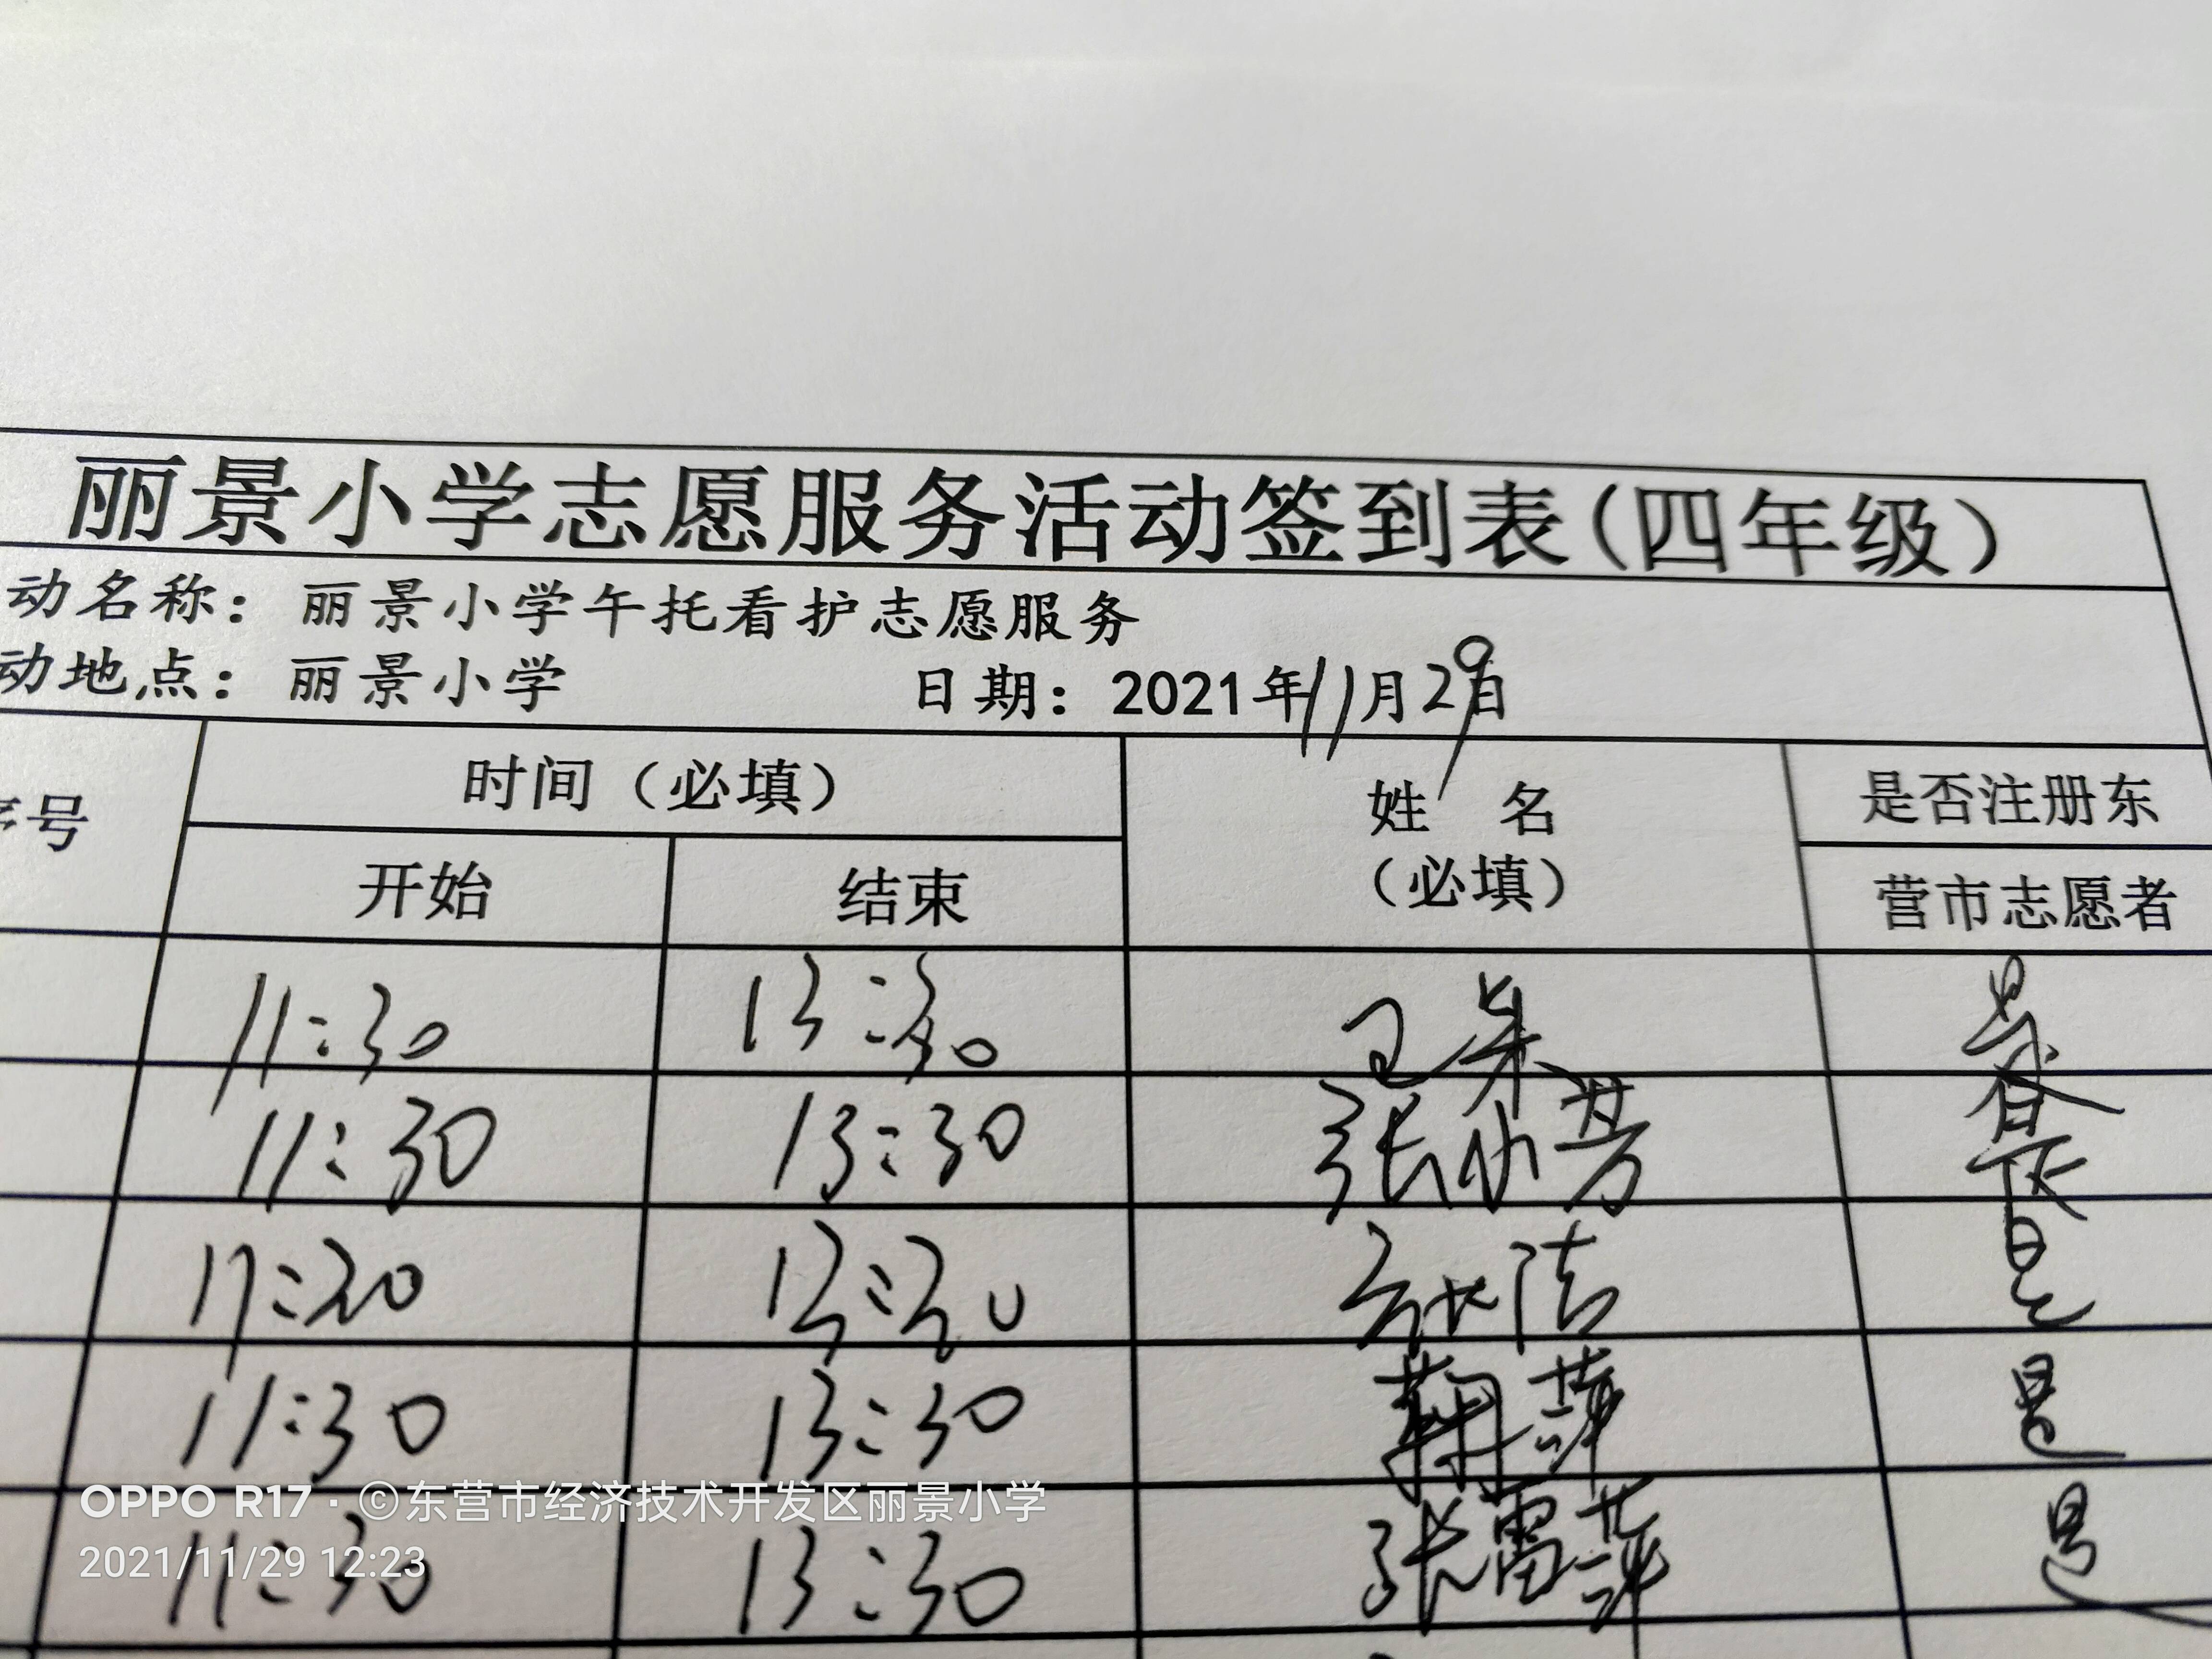 丽景小学志愿服务活动签到表(四年级)
动名称：丽景小学午托看护志愿服务
动地点：丽景小学 日期：2021年11月29日
序号 时间（必填） 姓 名 （必填） 是否注册东
开始 结束 营市志愿者
11:30 13:30 是
11:30 13:30 张小芳 是
11:30 13:30 是
11:30 13:30 是
11:30 13:30 张雷萍 是
OPPO R17 · ©东营市经济技术开发区丽景小学
2021/11/29 12:23